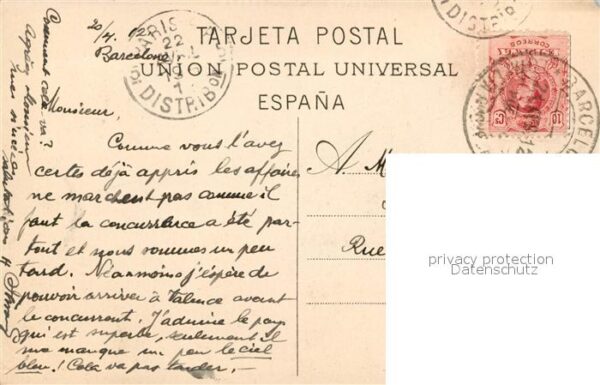 20/4. 12
Barcelone
TARJETA POSTAL
UNION POSTAL UNIVERSAL
ESPAÑA
PARIS
DISTRIB
DISTRIB
CORREOS
BARCELONA
10 Cs
Monsieur,
Comme vous l'avez
certes déjà appris les affaires
ne marchent pas comme il
faut la concurrence a été par-
tout et nous sommes un peu
tard. Néanmoins j'espère de
pouvoir arriver à Valence avant
le concurrent. J'admire le pays
qui est superbe, seulement il
me manque un peu le ciel
bleu.! Cela va pas tarder.-
Comment cela va?
Agréez Monsieur
mes sincères
salutations
A M
Rue
privacy protection
Datenschutz